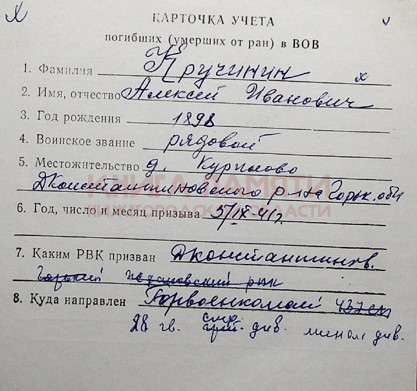 КАРТОЧКА УЧЕТА
погибших (умерших от ран) в ВОВ
1. Фамилия Кручинин х
2. Имя, отчество Алексей Иванович
3. Год рождения 1898
4. Воинское звание рядовой
5. Местожительство д. Курилово
Дконстантиновского р-на Горьк. обл
КНИГА ПАМЯТИ
НИЖЕГОРОДСКОЙ ОБЛАСТИ
6. Год, число и месяц призыва 5/IX-41г.
7. Каким РВК призван Дконстантинов.
8. Куда направлен Горвоенкомат
28 гв. стр. див. мином див.